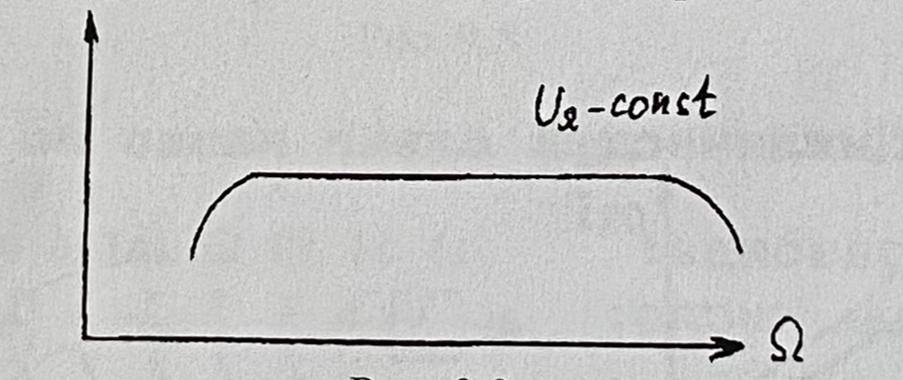 U_Ω-const
Ω